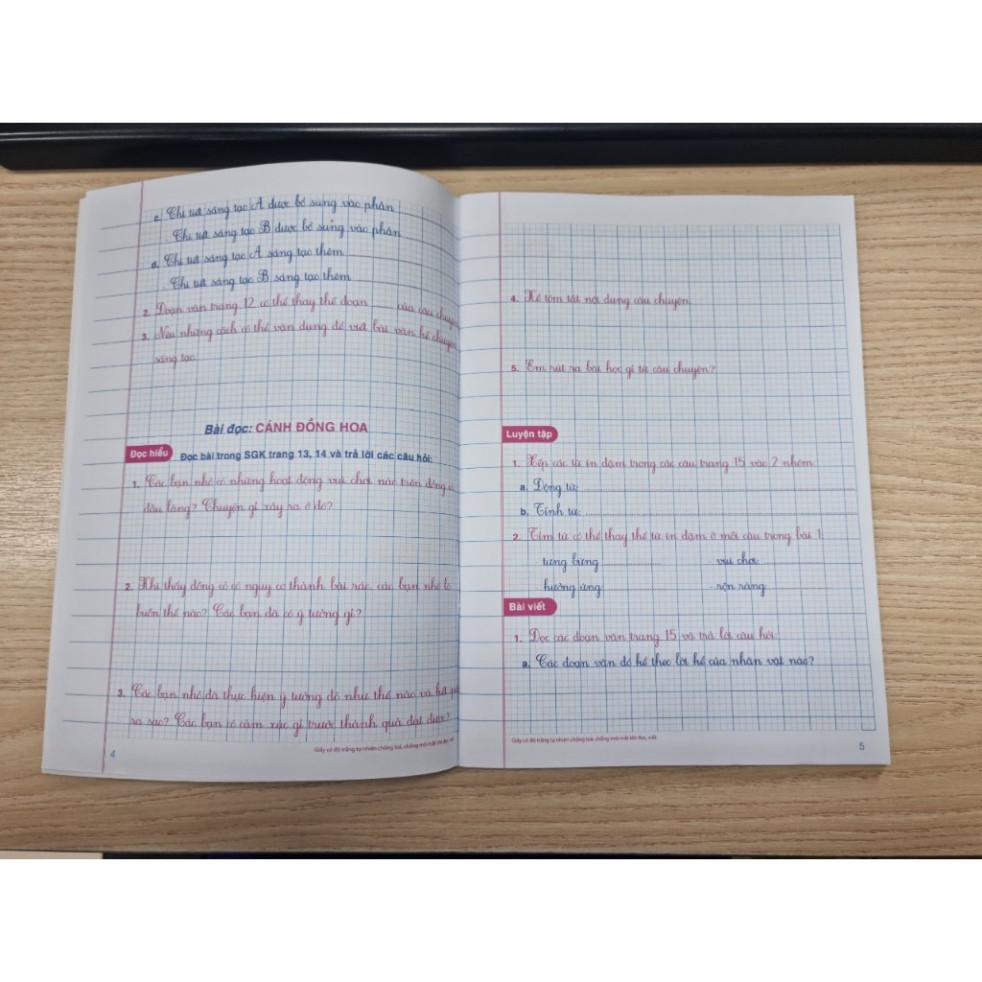 c. Chi tiết sáng tạo A được bổ sung vào phần
Chi tiết sáng tạo B được bổ sung vào phần
d. Chi tiết sáng tạo A sáng tạo thêm
Chi tiết sáng tạo B sáng tạo thêm
2. Đoạn văn trang 12 có thể thay thế đoạn của câu chuyện
3. Nêu những cách có thể vận dụng để viết bài văn kể chuyện
sáng tạo.
Bài đọc: CÁNH ĐỒNG HOA
Đọc hiểu Đọc bài trong SGK trang 13, 14 và trả lời các câu hỏi:
1. Các bạn nhỏ có những hoạt động vui chơi nào trên đồng cỏ
đầu làng? Chuyện gì xảy ra ở đó?
2. Khi thấy đồng cỏ có nguy cơ thành bãi rác, các bạn nhỏ lo
buồn thế nào? Các bạn đã có ý tưởng gì?
3. Các bạn nhỏ đã thực hiện ý tưởng đó như thế nào và kết
ra sao? Các bạn có cảm xúc gì trước thành quả đạt được?
Giấy có độ trắng tự nhiên chống loá, chống mỏi mắt khi đọc, viết
4
4. Kể tóm tắt nội dung câu chuyện.
5. Em rút ra bài học gì từ câu chuyện?
Luyện tập
1. Xếp các từ in đậm trong các câu trang 15 vào 2 nhóm:
a. Động từ:
b. Tính từ:
2. Tìm từ có thể thay thế từ in đậm ở mỗi câu trong bài 1:
- tưng bừng: - vui chơi:
- hưởng ứng: - rộn ràng:
Bài viết
1. Đọc các đoạn văn trang 15 và trả lời câu hỏi:
a. Các đoạn văn đó kể theo lời kể của nhân vật nào?
Giấy có độ trắng tự nhiên chống loá, chống mỏi mắt khi đọc, viết
5